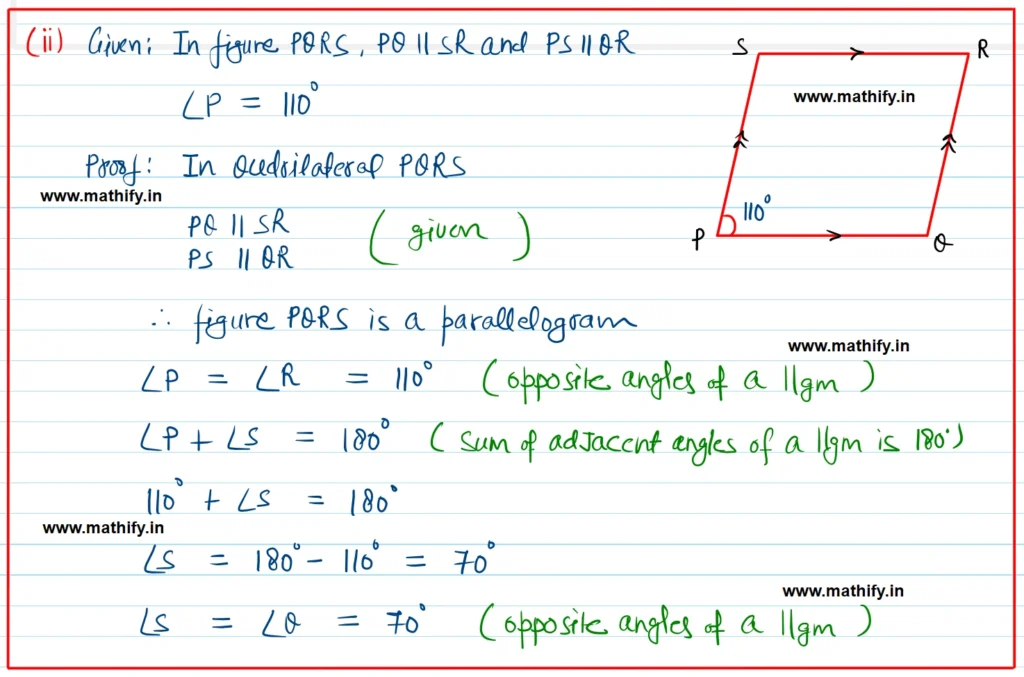 (ii) Given: In figure PQRS, PQ || SR and PS || QR
∠P = 110°
S R
www.mathify.in
110°
P Q
Proof: In Quadrilateral PQRS
www.mathify.in
PQ || SR
PS || QR
(given)
∴ figure PQRS is a parallelogram
www.mathify.in
∠P = ∠R = 110° (opposite angles of a ||gm)
∠P + ∠S = 180° (sum of adjacent angles of a ||gm is 180°)
110° + ∠S = 180°
www.mathify.in
∠S = 180° - 110° = 70°
www.mathify.in
∠S = ∠Q = 70° (opposite angles of a ||gm)